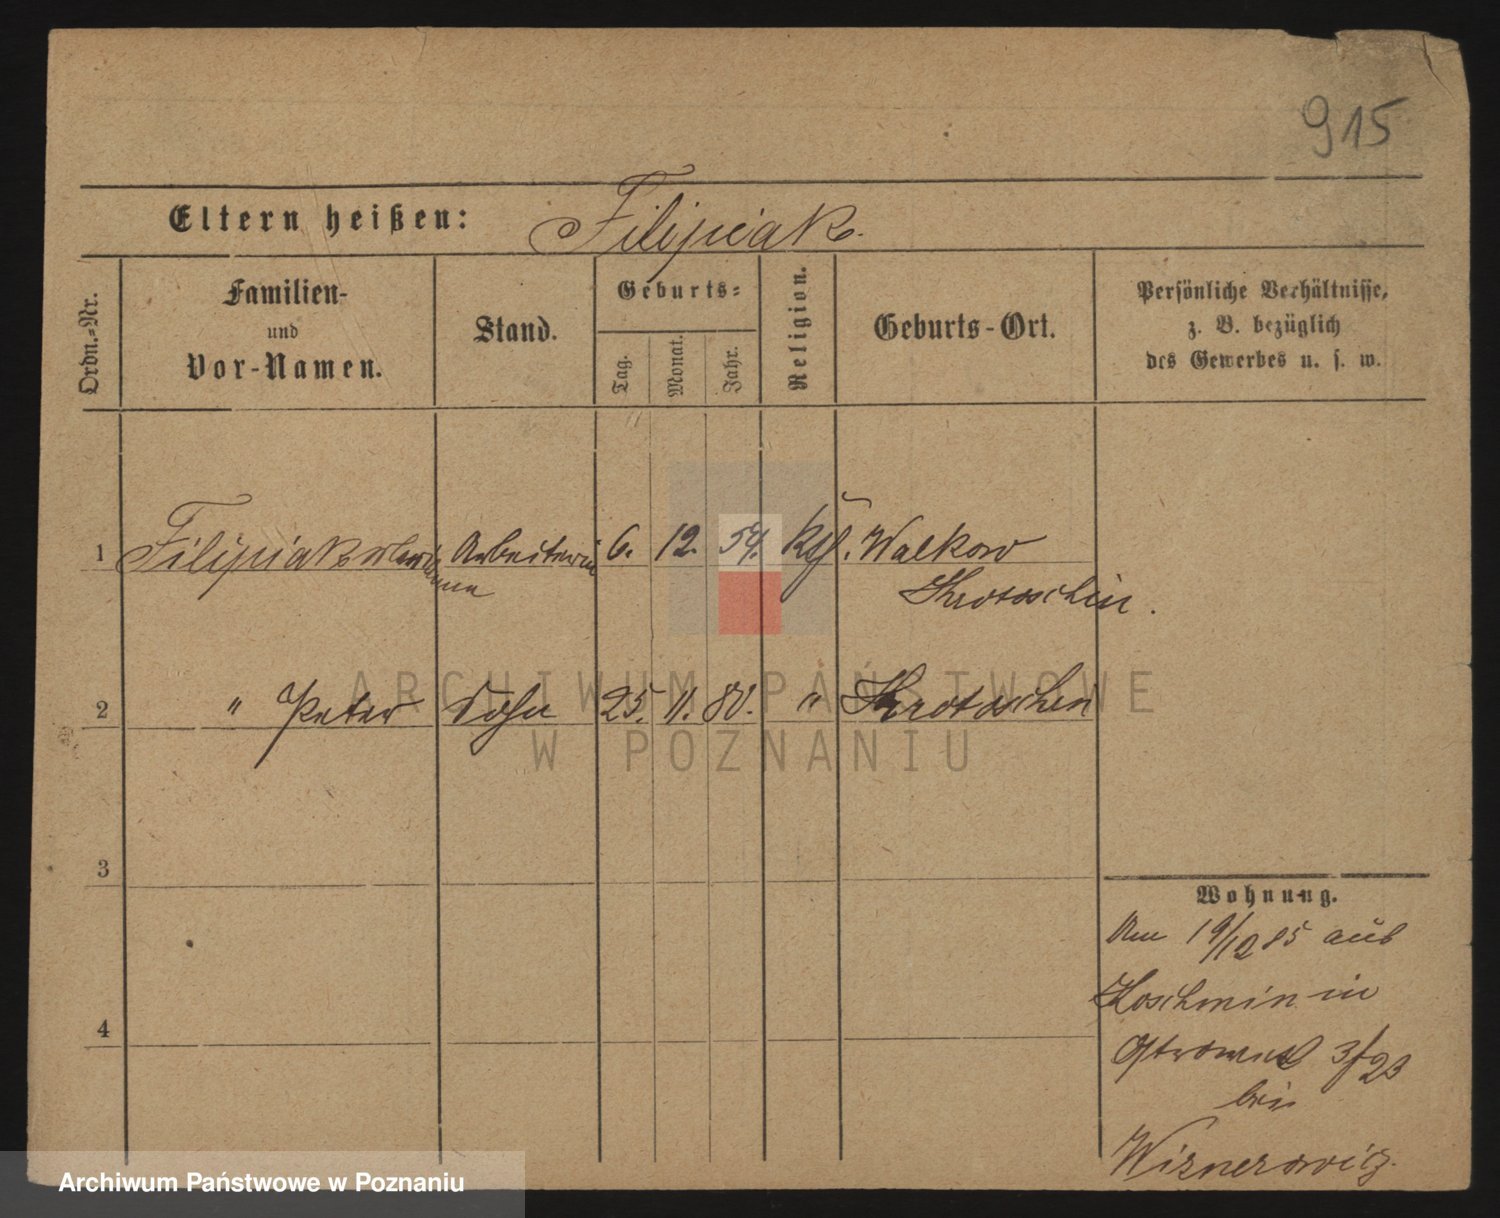 915
Eltern heißen: Filipiak.
Ordn.-Nr.
Familien-
und
Vor-Namen.
Stand.
Geburts-
Tag.
Monat.
Jahr.
Religion.
Geburts-Ort.
Persönliche Verhältnisse,
z. B. bezüglich
des Gewerbes u. s. w.
1 Filipiak Arbeiterin 6. 12. 54. Kgl. Walkow
Krotoschin.
2 " Peter Sohn 25. 11. 80. " Krotoschin
3
4
Wohnung.
Am 19/12 85 aus
Koschmin in
Ostrowek 3/23
bei
Wisnerowicz.
ARCHIWUM PAŃSTWOWE
W POZNANIU
Archiwum Państwowe w Poznaniu